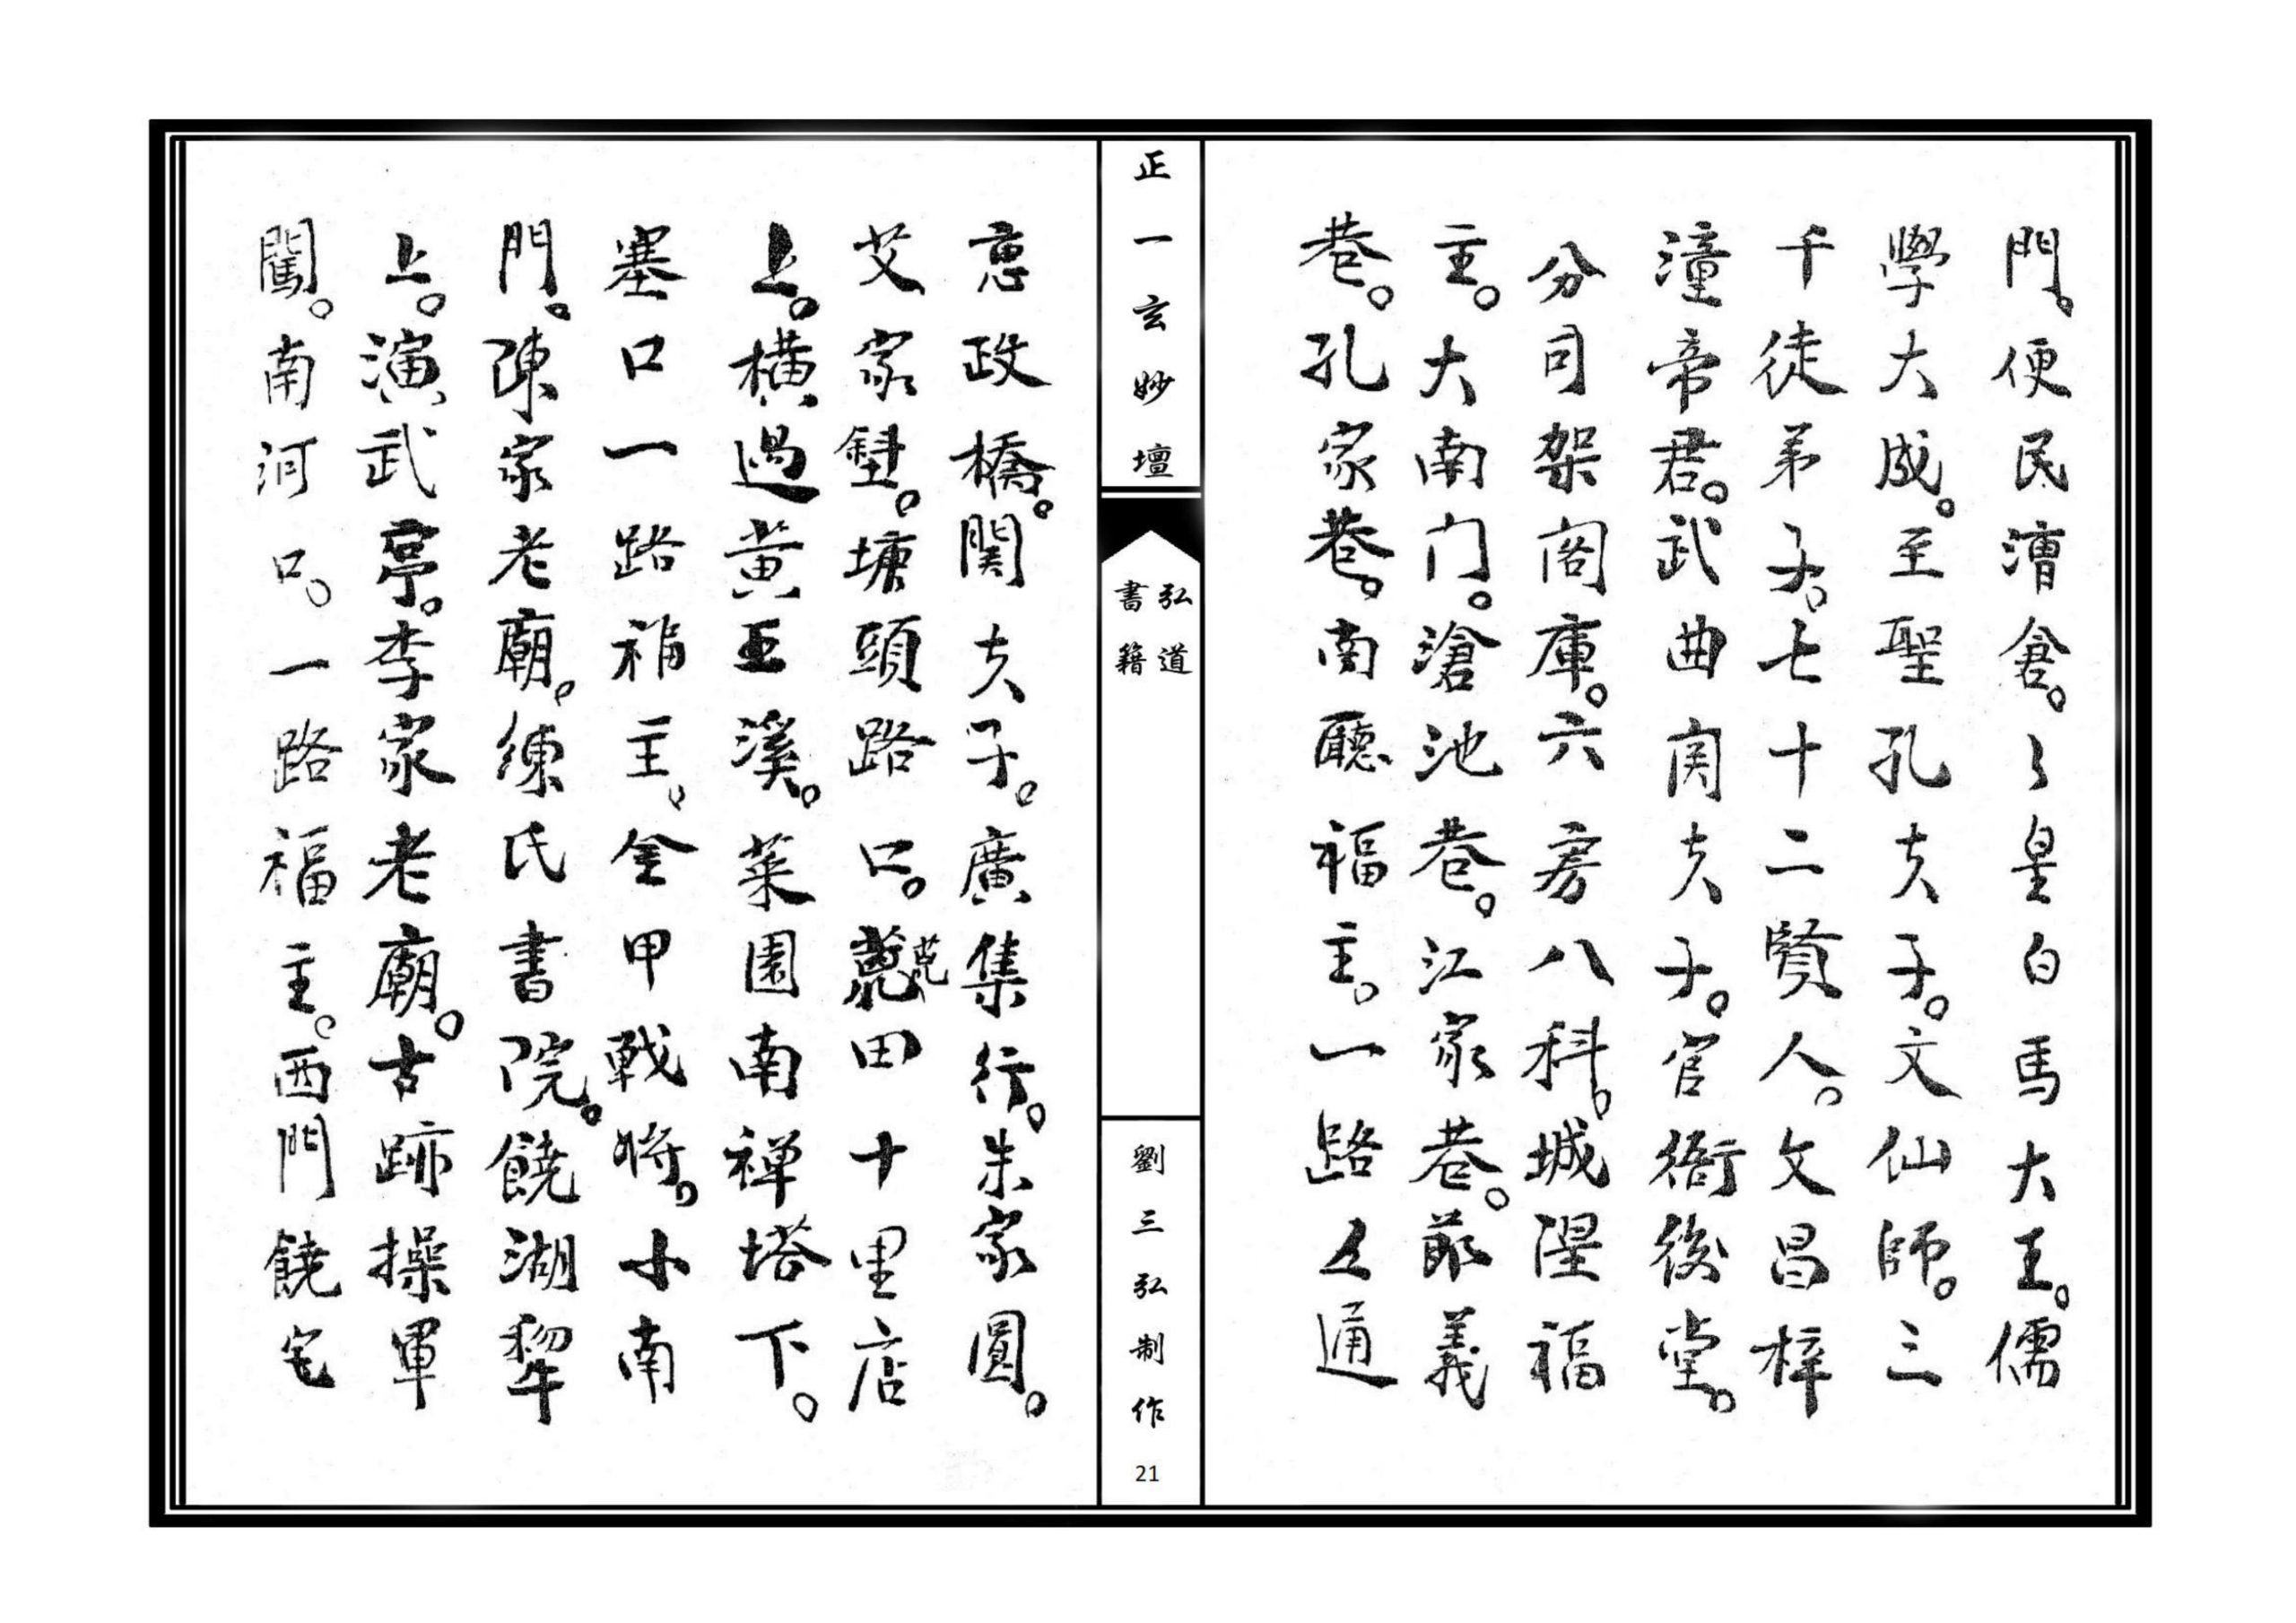 門。便民漕倉。〻皇白馬大王。儒
學大成。至聖孔夫子。文仙師。三
千徒弟子。七十二賢人。文昌梓
潼帝君。武曲関夫子。官衙後堂。
分司架阁庫。六房八科。城隍福
主。大南门。滄池巷。江家巷。節義
巷。孔家巷。南廳福主。一路〻通
正一玄妙壇
弘道
書籍
劉三弘制作
21
惠政橋。関夫子。廣集行。朱家圓。
艾家。塘頭路口。莧田十里店
上。橫過黃王溪。菜園南禅塔下。
塞口一路福主。金甲戰将。小南
門。陳家老廟。練氏書院。饒湖犂
上。演武亭。李家老廟。古跡操軍
闖。南河口。一路福主。西門饒宅